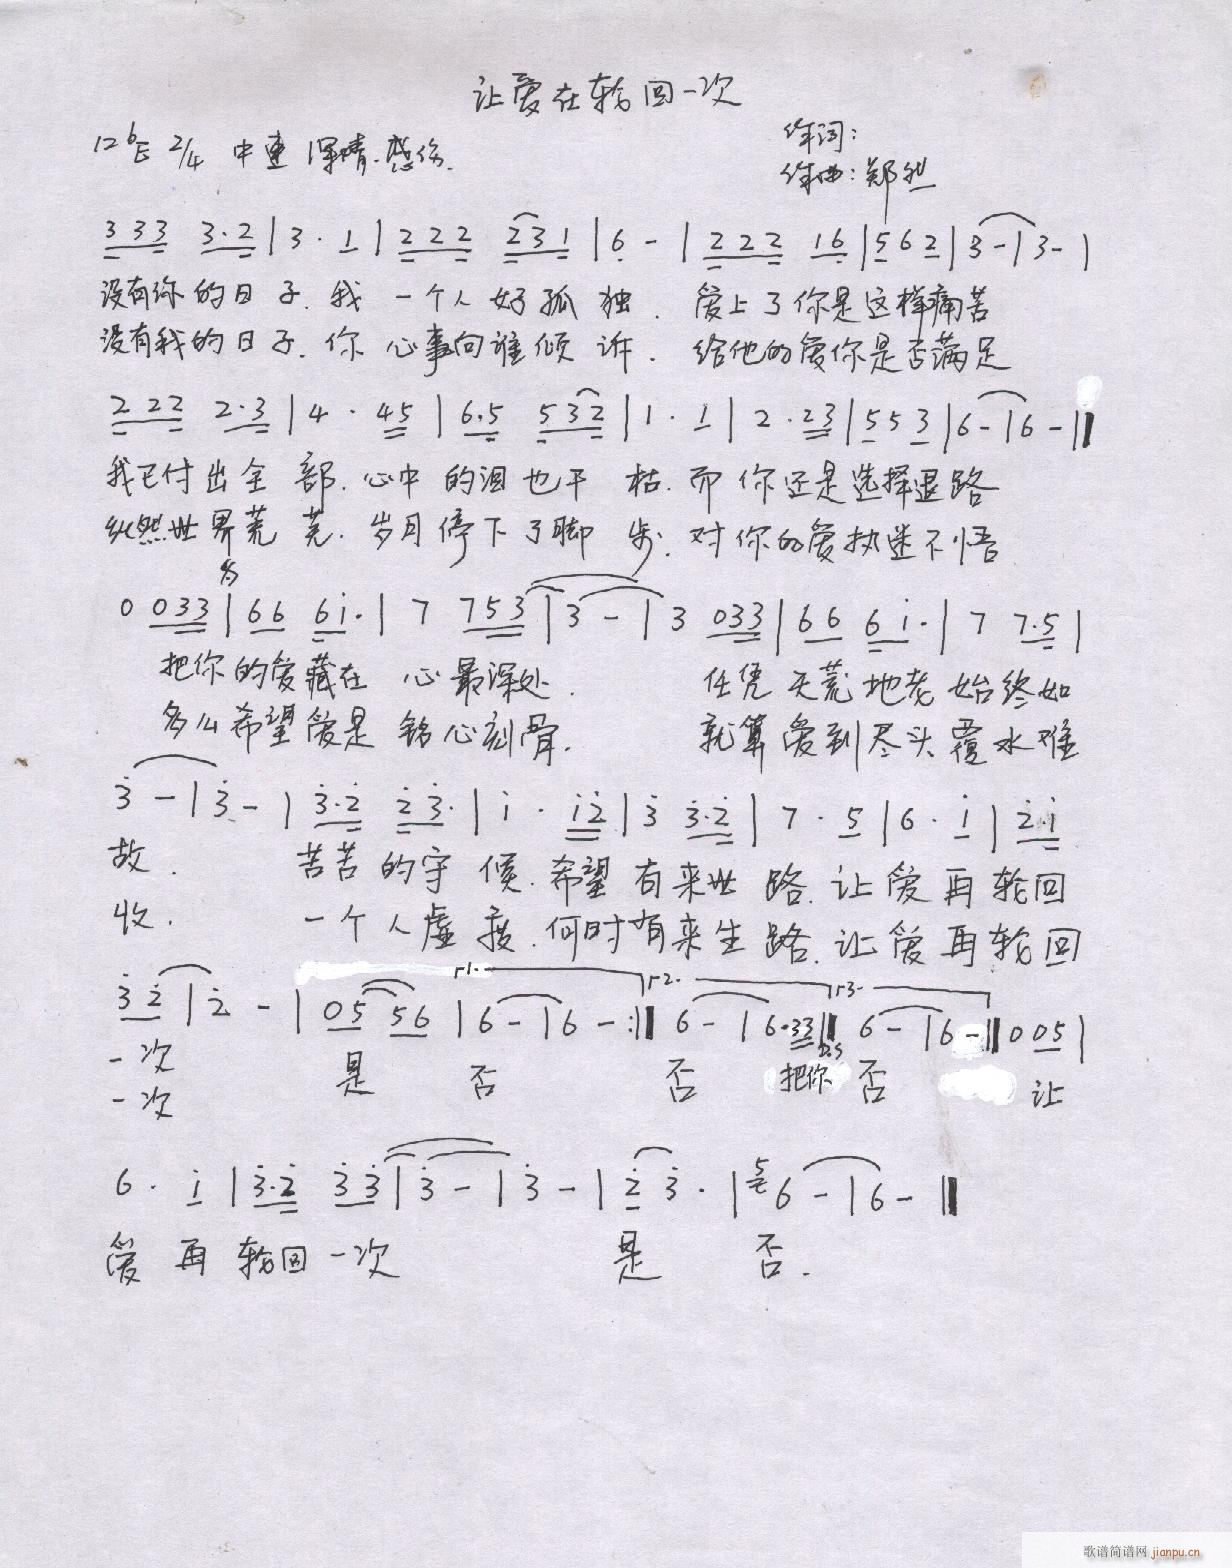 让爱在轮回一次
1=♭E 2/4 中速 深情.感伤.
作词:
作曲:郑
3 3 3 3·2 | 3 · 1 | 2 2 2 2 3 1 | 6 - | 2 2 2 1 6 | 5 6 2 | 3 - | 3 - |
没有你的日子.我一个人好孤独.爱上了你是这样痛苦
没有我的日子.你心事向谁倾诉.给他的爱你是否满足
2 2 2 2·3 | 4 · 4 5 | 6·5 5 3 2 | 1 · 1 | 2 · 2 3 | 5 5 3 | 6 - | 6 - ‖
我已付出全部.心中的泪也干枯.而你还是选择退路
纵然世界荒芜.岁月停下了脚步.对你的爱执迷不悟
0 0 3 3 | 6 6 6 i· | 7 7 5 3 | 3 - | 3 0 3 3 | 6 6 6 i· | 7 7·5 |
把你的爱藏在心最深处.任凭天荒地老始终如
多么希望爱是铭心刻骨.就算爱到尽头覆水难
3̇ - | 3̇ - | 3̇·2̇ 2̇ 3̇· | i · i 2̇ | 3̇ 3̇·2̇ | 7 · 5 | 6 · i | 2̇·i
故.苦苦的守候.希望有来世路.让爱再轮回
收.一个人虚度.何时有来生路.让爱再轮回
r1. r2. r3.
3̇ 2̇ | 2̇ - | 0 5 5 6 | 6 - | 6 - :‖ 6 - | 6·3 3 ‖ 6 - | 6 - ‖ 0 0 5 |
D.S
一次 是 否 否 把你 否 让
一次
6 · i | 3̇·2̇ 3̇ 3̇ | 3̇ - | 3̇ - | 2̇ 3̇ · | 5 6 - | 6 - ‖
爱再轮回一次 是 否.
歌谱简谱网 jianpu.cn